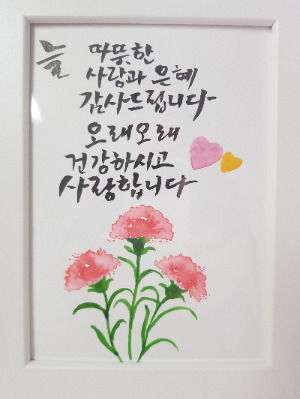 늘 따뜻한
사랑과 은혜
감사드립니다
오래오래
건강하시고
사랑합니다